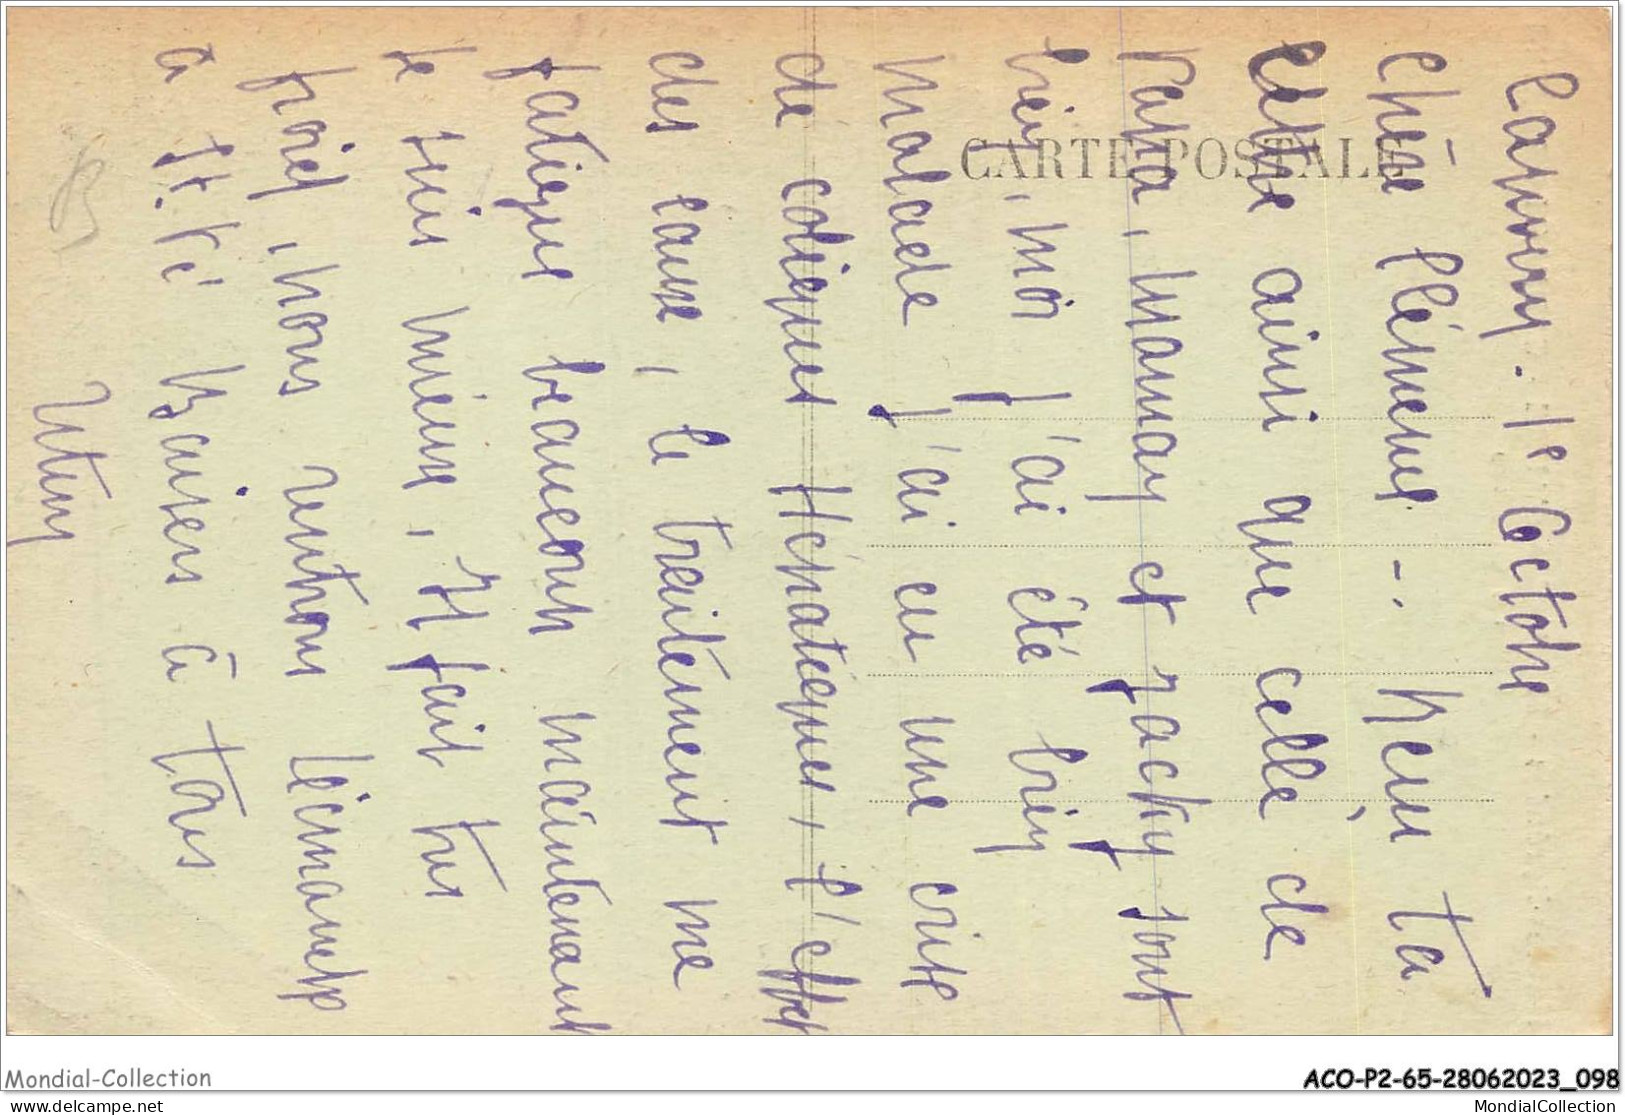 Capvern. 1e Octobre
Chère Clémence -. Reçu ta
lettre ainsi que celle de
Papa, maman et Jacky sont
bien, moi j'ai été bien
malade j'ai eu une crise
de coliques Hépatiques, l'effet
des eaux, le traitement me
fatigue beaucoup maintenant
je suis mieux, Il fait très
froid, nous rentrons Dimanche
à St. Bé Baisers à tous
CARTE POSTALE
Mondial-Collection
ACO-P2-65-28062023_098
www.delcampe.net
MondialCollection